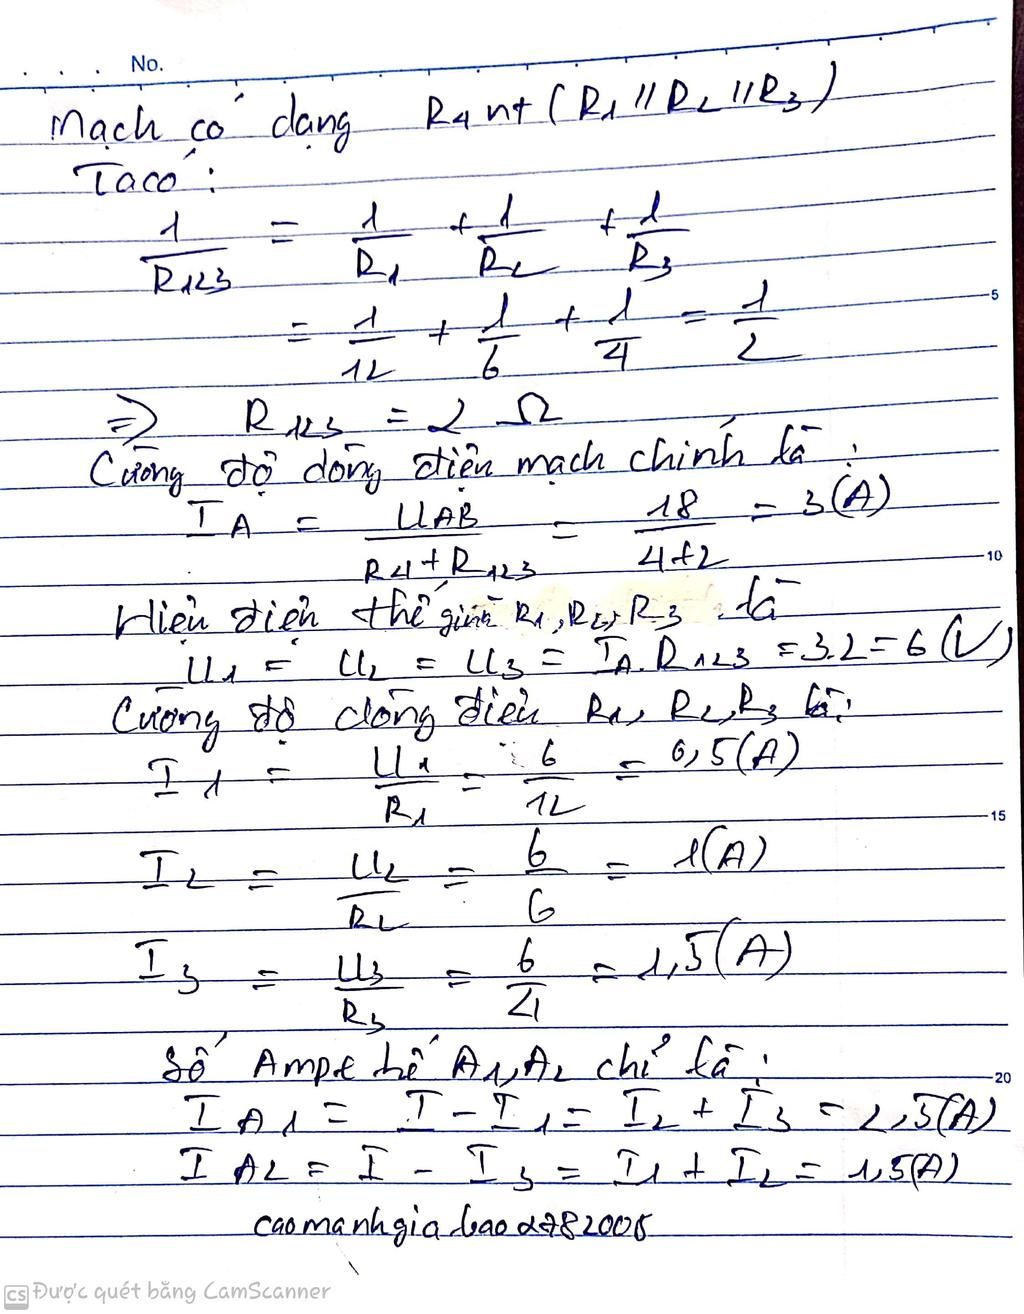 No.
Mạch có dạng R4 nt (R1 // R2 // R3)
Ta có:
1/R123 = 1/R1 + 1/R2 + 1/R3
= 1/12 + 1/6 + 1/4 = 1/2
5
=> R123 = 2 Ω
Cường độ dòng điện mạch chính là:
IA = UAB/(R4+R123) = 18/(4+2) = 3(A)
10
Hiệu điện thế giữa R1, R2, R3 là
U1 = U2 = U3 = IA.R123 = 3.2 = 6 (V)
Cường độ dòng điện R1, R2, R3 là:
I1 = U1/R1 = 6/12 = 0,5(A)
15
I2 = U2/R2 = 6/6 = 1(A)
I3 = U3/R3 = 6/4 = 1,5(A)
Số Ampe kế A1, A2 chỉ là:
20
IA1 = I - I1 = I2 + I3 = 2,5(A)
IA2 = I - I3 = I1 + I2 = 1,5(A)
caomanhgiabao2782006
CS Được quét bằng CamScanner